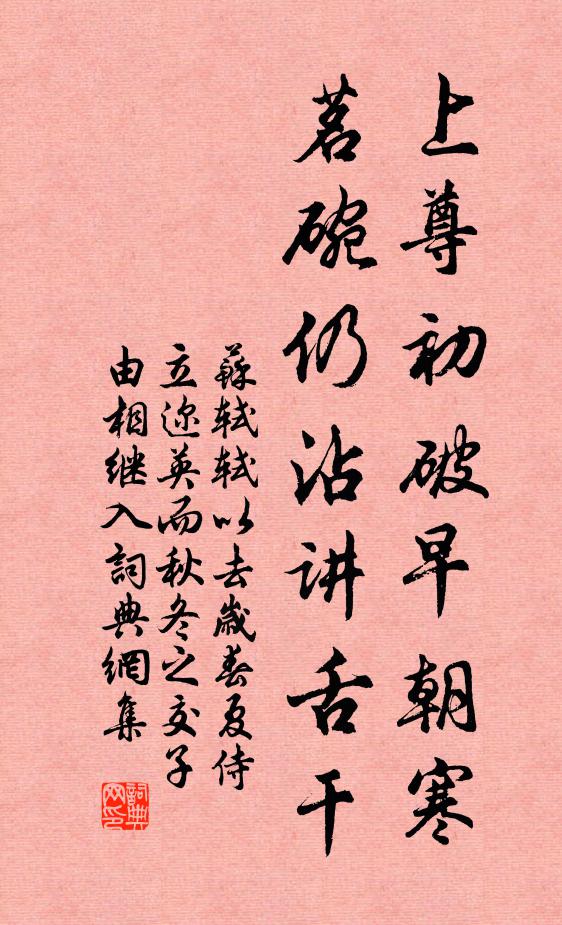 上尊初破早朝寒
茗碗仍沾讲舌干
蘇轼轼以去歲春夏侍
立迩英而秋冬之交子
由相继入詞典網集
詞典网印